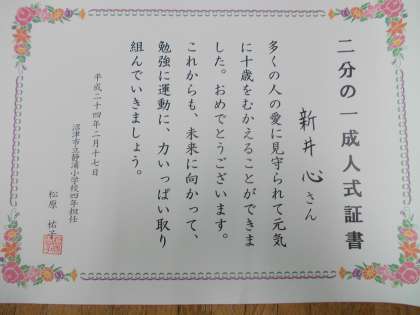 二分の一成人式証書
新井 心さん
多くの人の愛に見守られて元気
に十歳をむかえることができま
した。おめでとうございます。
これからも、未来に向かって、
勉強に運動に、力いっぱい取り
組んでいきましょう。
平成二十四年二月十七日
沼津市立静浦小学校四年担任
松原 祐